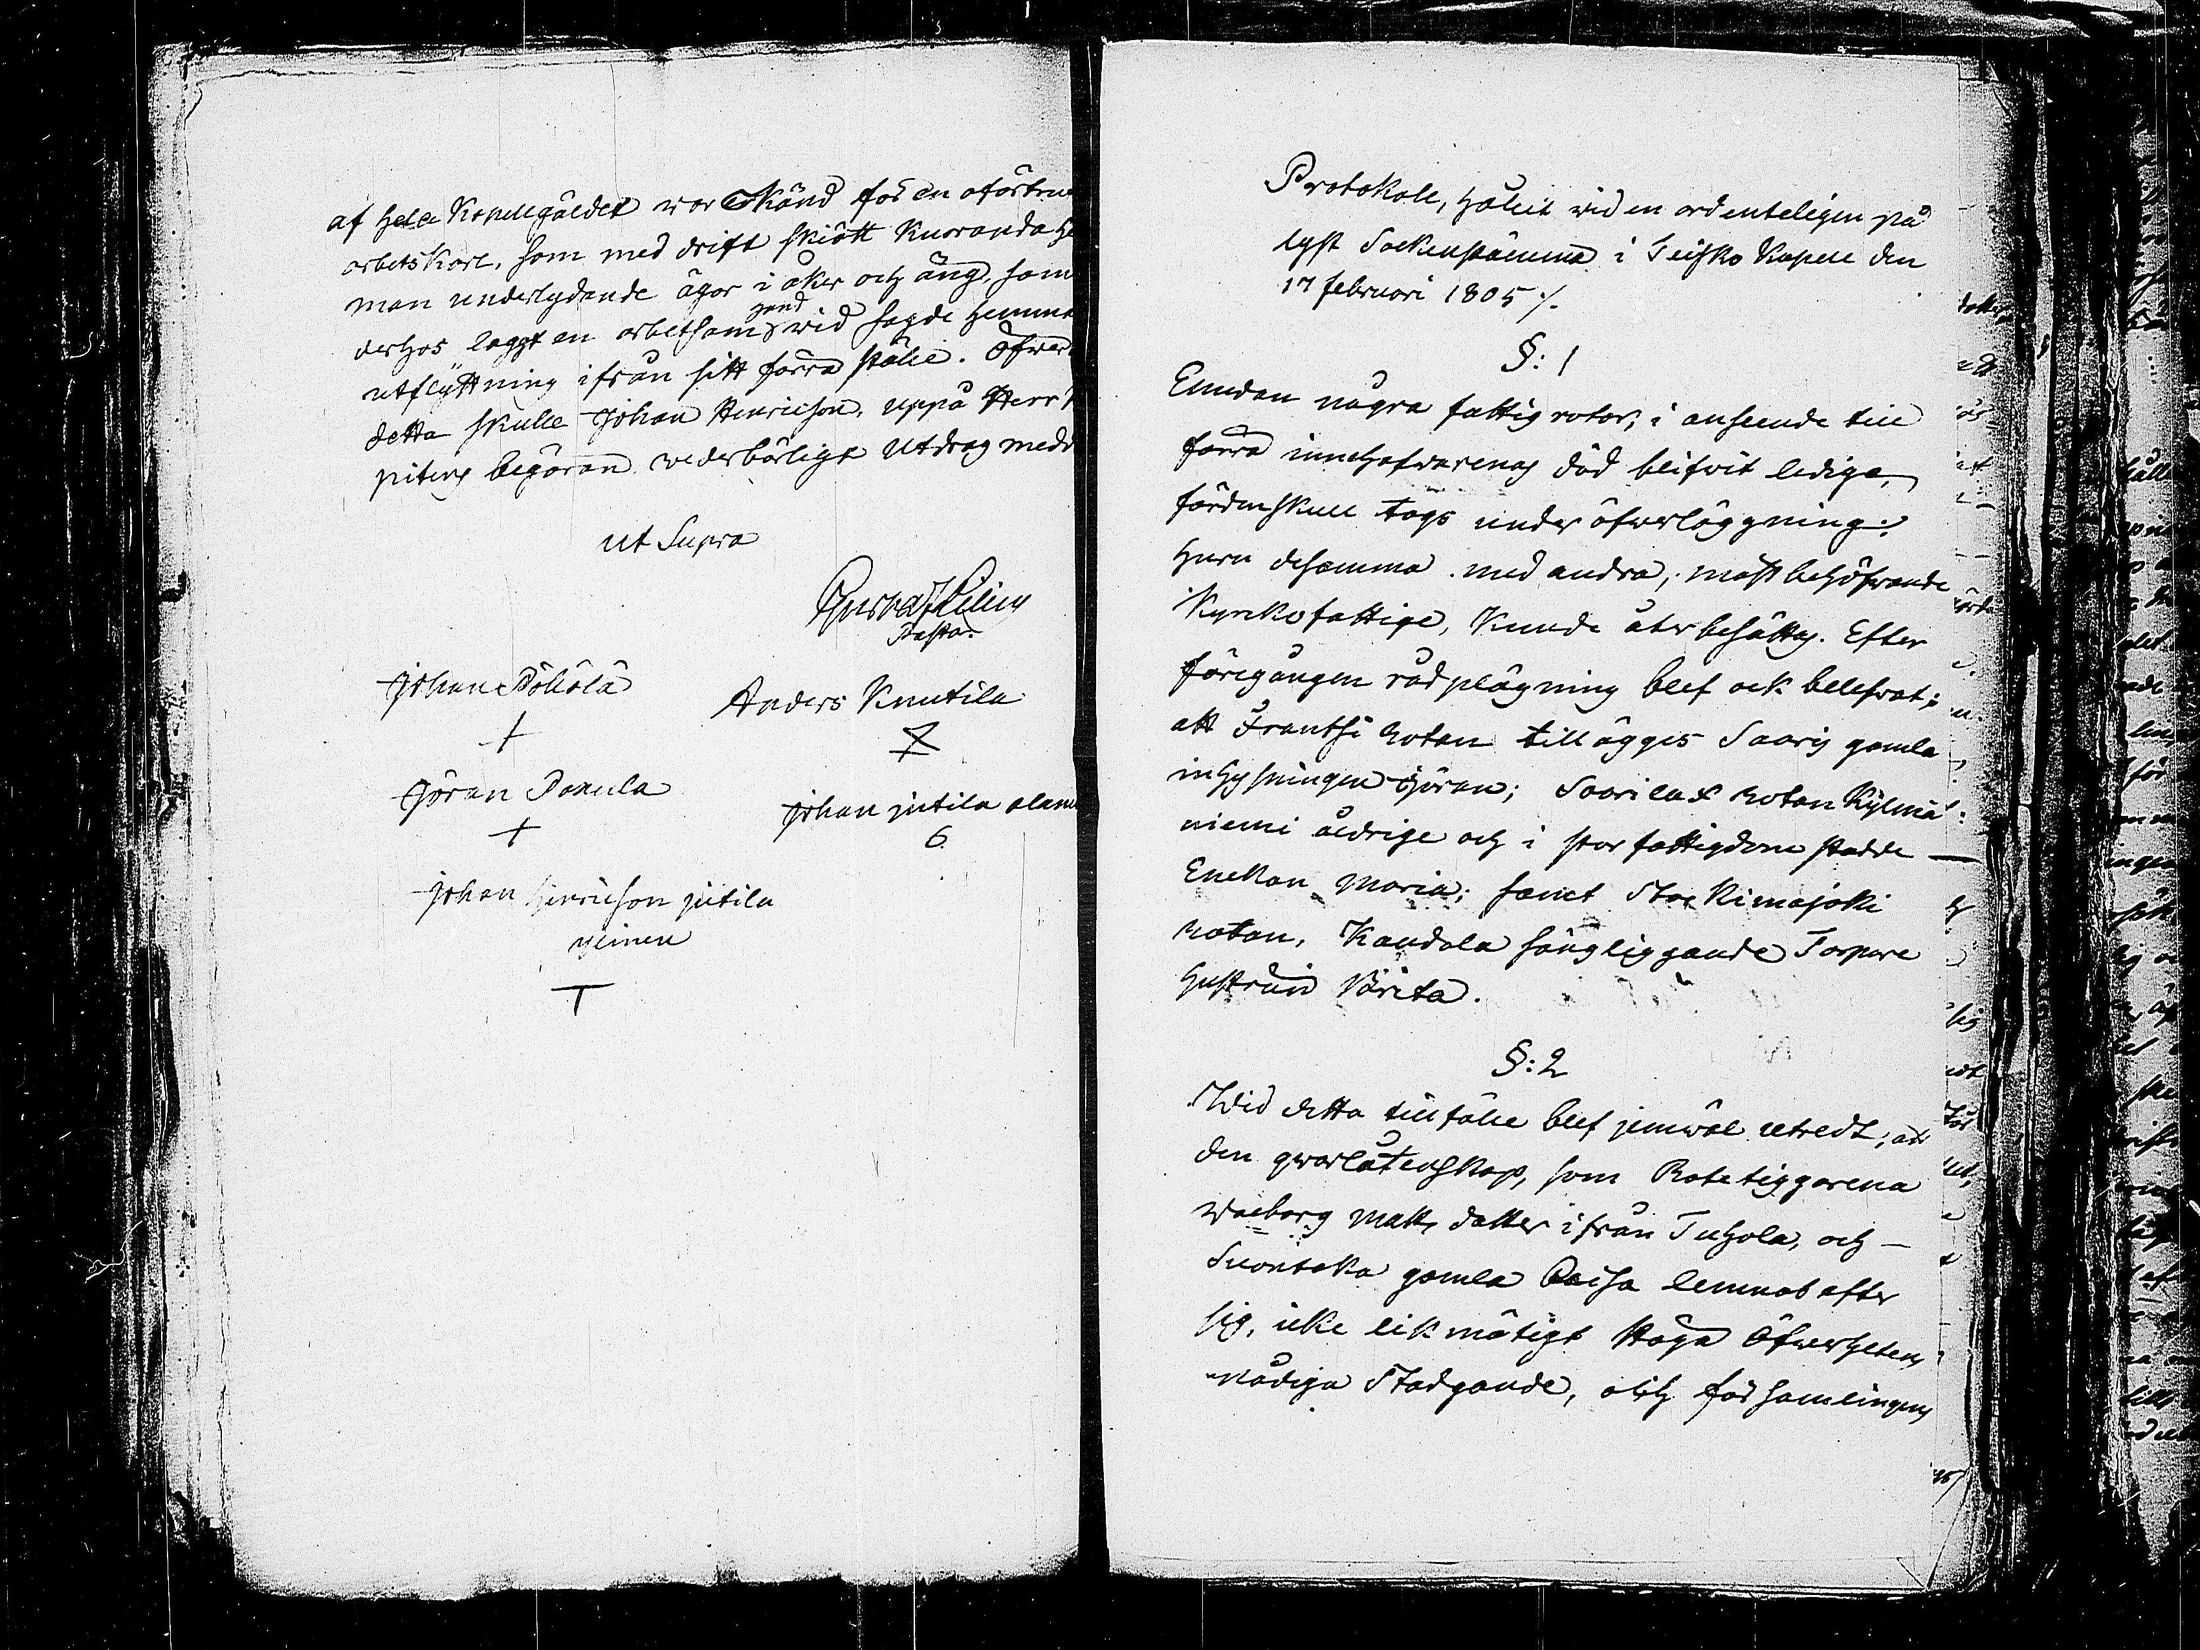 af hela Kapellgäldet war Känd för en oförtru
arbetskarl, som med drift skiött Kuoranda he
man underlydande ägor i åker och äng, som
derhos laggt en arbetsam hand wid sagde hemma
utflyttning ifrån sitt förra ställe. Öfwer
detta skulle Johan Henricson, uppå Herr
pitens begäran wederbörligt Utdrag medd
ut Supra
Gustaf
Pastor
Johan Pökölä
+
Anders Knutila
Göran Pakula
+
Johan jutila alanen
6
Johan Henricson jutila
yleinen
T
Protokoll, hållit wid en ordenteligen på
lyst Sockenstämma i Teisko Kapell den
17 februari 1805 ./.
§: 1
Emedan några fattig rotar, i anseende till
förra innehafwarenas död blifwit ledige,
fördenskull togs under öfwerläggning:
huru desamma med andra, mäst behöfwande
Kyrkofattige, Kunde åter besättas. Efter
föregången rådplägning blef ock belefwat;
att Frantsi rotan tillägges Saaris gamla
inhysningen Göran; Saarilax rotan Kylmä:
niemi åldrige och i stor fattigdom stadde —
Enekan Maria; samt Stockimajoki
rotan, Kandola sängliggande Torpare
hustrun Wärita.
§: 2
Wid detta tillfälle blef jemwäl utredt, att
den qwarlåtenskap, som Rotetiggarena
Walborg Matts dotter ifrån Tuhola, och —
Suontaka gamla Caisa lemnat efter
sig, icke likmätigt Höga Öfwerhetens
nådiga Stadgande, och församlingens